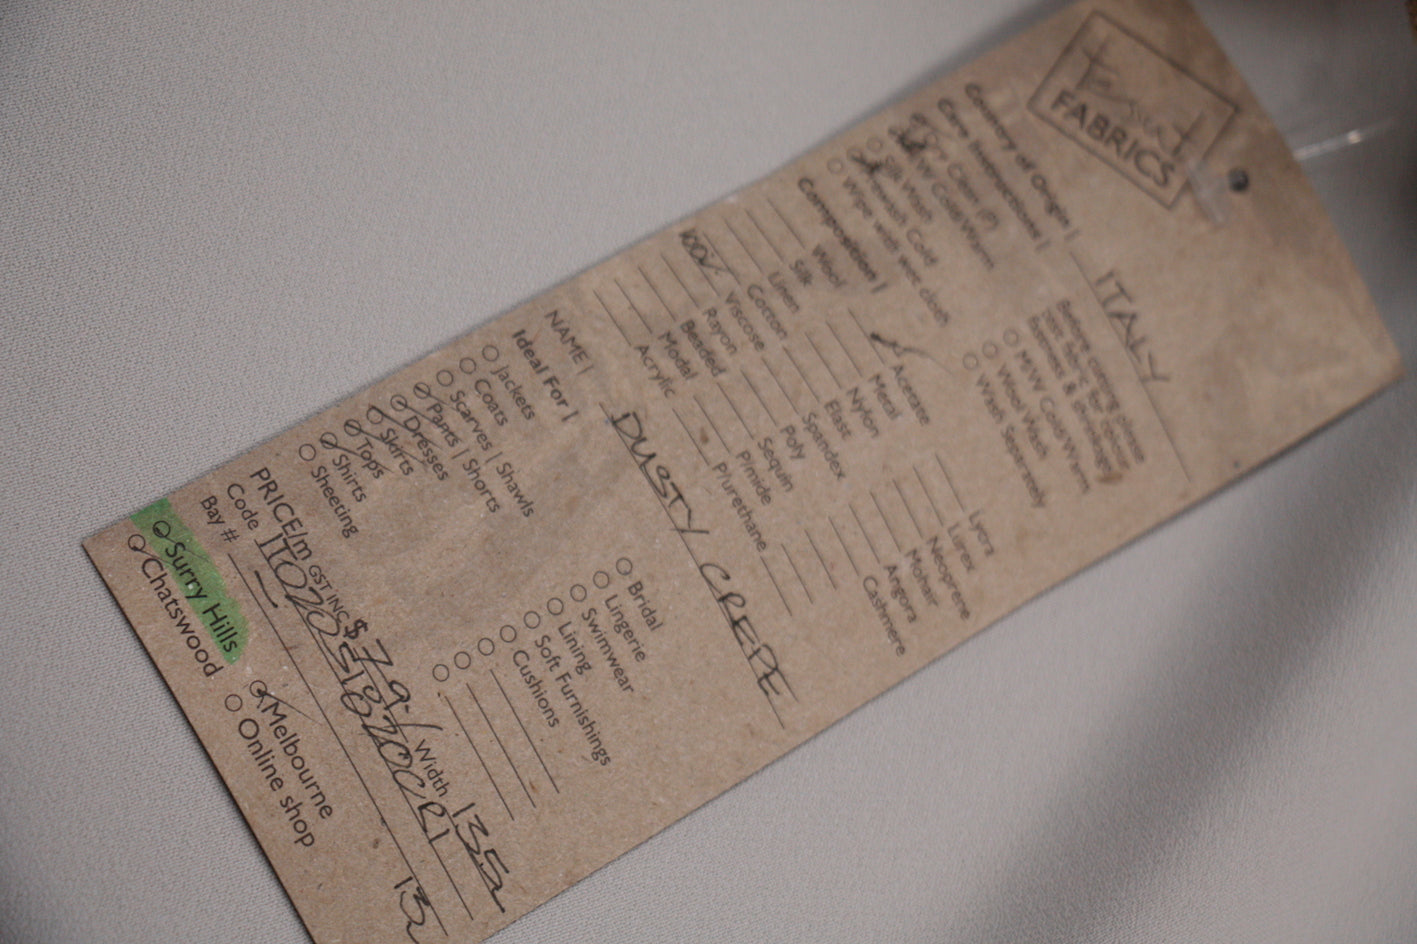 FABRICS
Country of Origin | ITALY
Care Instructions |
Dry Clean (P)
M/W Cold/Warm
Silk Wash
Handwash Cold
Wipe with wet cloth
Before cutting please
test fabric for colour
fastness & shrinkage
M/W Cold/Warm
Wool Wash
Wash Separately
Composition |
Wool
Silk
Linen
Cotton
100% Viscose
Rayon
Beaded
Modal
Acrylic
Acetate
Metal
Nylon
Elast
Spandex
Poly
Sequin
P/mide
P/urethane
Lycra
Lurex
Neoprene
Mohair
Angora
Cashmere
NAME | DUSTY CREPE
Ideal For |
Jackets
Coats
Scarves | Shawls
Pants | Shorts
Dresses
Skirts
Tops
Shirts
Sheeting
Bridal
Lingerie
Swimwear
Lining
Soft Furnishings
Cushions
PRICE/m GST INC $ 79.- Width 135
Code
Bay #
Surry Hills
Chatswood
Melbourne
Online shop